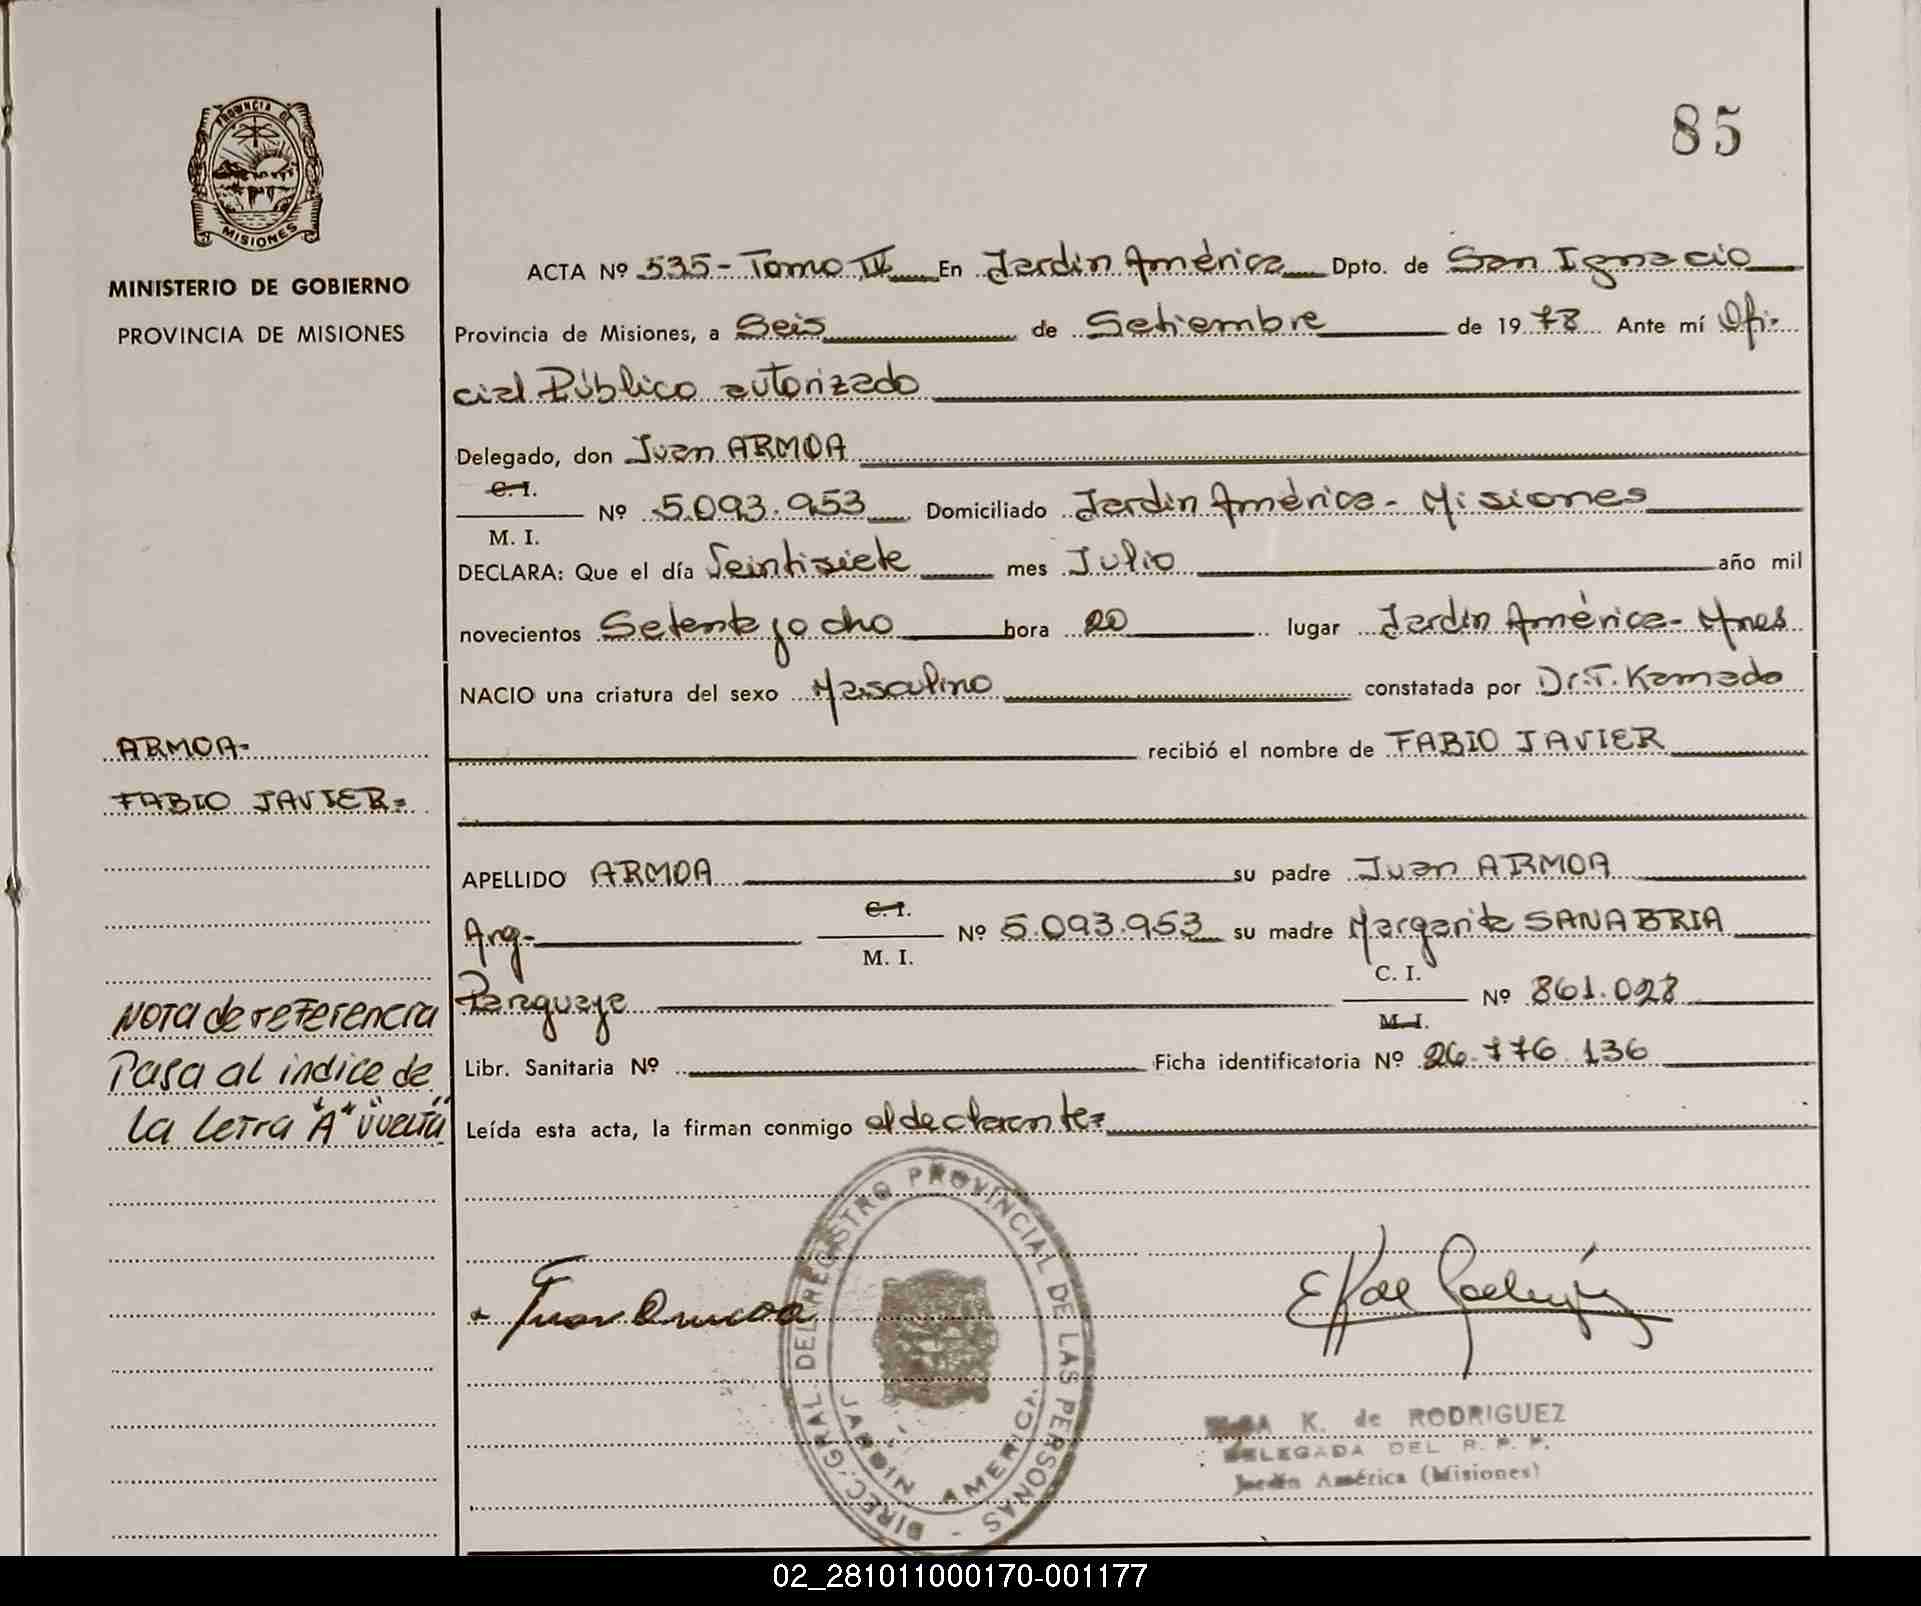 PROVINCIA DE
MISIONES
MINISTERIO DE GOBIERNO
PROVINCIA DE MISIONES
85
ACTA Nº 535- Tomo IV En Jardin América Dpto. de San Ignacio
Provincia de Misiones, a Seis de Setiembre de 1978 Ante mí Ofi-
cial Público autorizado
Delegado, don Juan ARMOA
C. I.
Nº 5.093.953 Domiciliado Jardin América- Misiones
M. I.
DECLARA: Que el día Veintisiete mes Julio año mil
novecientos Setenta y ocho hora 20 lugar Jardin América- Mnes
NACIO una criatura del sexo Masculino constatada por Dr. T. Kamado
ARMOA-
recibió el nombre de FABIO JAVIER
FABIO JAVIER=
APELLIDO ARMOA su padre Juan ARMOA
C. I.
Arg- Nº 5.093.953 su madre Margarita SANABRIA
M. I.
C. I.
Paraguaya Nº 861.028
M. I.
Libr. Sanitaria Nº Ficha identificatoria Nº 26.776.136
Leída esta acta, la firman conmigo el declarante=
NOTA de referencia
Pasa al indice de
La Letra "A" "vuelta"
DIREC. GRAL. DEL REGISTRO PROVINCIAL DE LAS PERSONAS -
JARDÍN AMERICA
Juan Armoa
K. de RODRIGUEZ
DELEGADA DEL R. P. P.
Jardín América (Misiones)
02_281011000170-001177